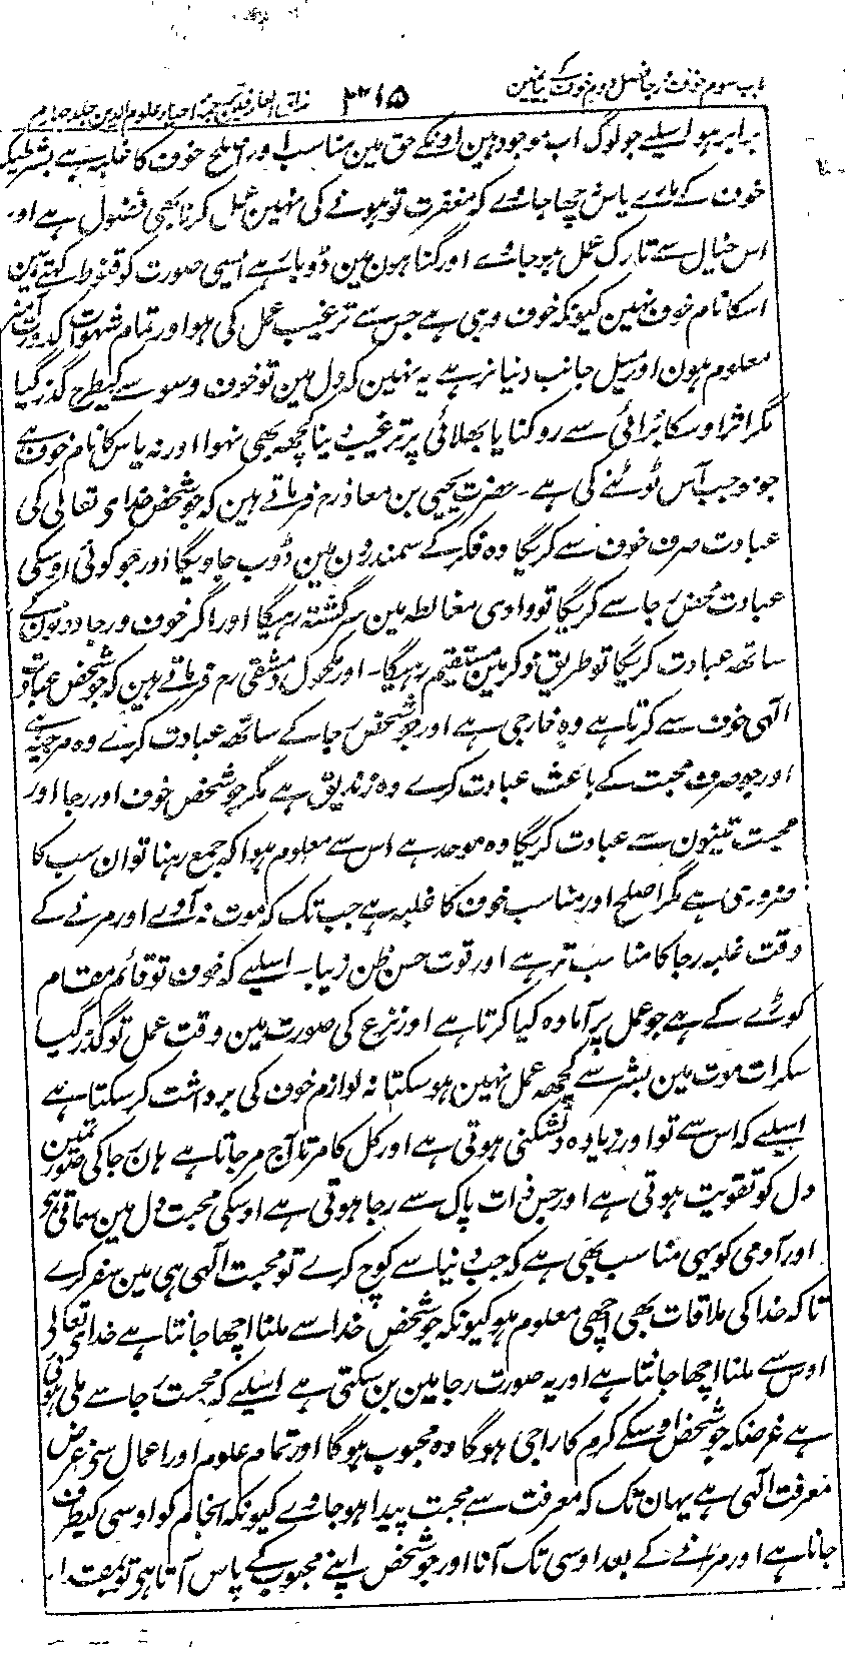 باب سوم خوف و رجا فصل دوم خوف کے بیانمین ۳۱۵ مذاق العارفین ترجمۂ احیاء علوم الدین جلد چہارم
برابر ہو اسلیے جو لوگ اب موجود ہین اونکے حق مین مناسب اور اصلح خوف کا غلبہ ہے بشرطیکہ
خوف کے مارے یاس نچھا جاوے کہ مغفرت تو ہونے کی نہین عمل کرنا بھی فضول ہے اور
اس خیال سے تارک عمل ہو جاوے اور گناہون مین ڈوبا رہے ایسی صورت کو قنوط کہتے ہین
اسکا نام خوف نہین کیونکہ خوف وہی ہے جس سے ترغیب عمل کی ہو اور تمام شہوات کدورت آمیز
معلوم ہون اور میل جانب دنیا نرہے یہ نہین کہ دل مین تو خوف وسوسے کیطرح گذر گیا
مگر اثر اوسکا برائی سے روکنا یا بھلائی پر ترغیب دینا کچھہ بھی نہوا اور نہ یاس کا نام خوف ہے
جو موجب آس ٹوٹنے کی ہے ۔ حضرت یحیی بن معاذ رح فرماتے ہین کہ جو شخص خدای تعالی کی
عبادت صرف خوف سے کریگا وہ فکر کے سمندرون مین ڈوب جاویگا اور جو کوئی اوسکی
عبادت محض رجا سے کریگا تو وادی مغالطہ مین سرگشتہ رہیگا اور اگر خوف و رجا دونون کے
ساتھہ عبادت کریگا تو طریق ذکر مین مستقیم رہیگا ۔ اور مکحول دمشقی رح فرماتے ہین کہ جو شخص عبادت
الہی خوف سے کرتا ہے وہ خارجی ہے اور جو شخص رجا کے ساتھہ عبادت کرے وہ مرجیہ ہے
اور جو صرف محبت کے باعث عبادت کرے وہ زندیق ہے مگر جو شخص خوف اور رجا اور
محبت تینون سے عبادت کریگا وہ موحد ہے اس سے معلوم ہوا کہ جمع رہنا تو ان سب کا
ضروری ہے مگر اصلح اور مناسب خوف کا غلبہ ہے جب تک کہ موت نہ آوے اور مرنے کے
وقت غلبہ رجا کا مناسب تر ہے اور قوت حسن ظن زیبا ۔ اسلیے کہ خوف تو قائم مقام
کوڑے کے ہے جو عمل پر آمادہ کیا کرتا ہے اور نزع کی صورت مین وقت عمل تو گذر گیا
سکرات موت مین بشر سے کچھہ عمل نہین ہو سکتا نہ لوازم خوف کی برداشت کر سکتا ہے
اسلیے کہ اس سے تو اور زیادہ دلشکنی ہوتی ہے اور کل کا مرتا آج مر جاتا ہے ہان رجا کی صورتمین
دل کو تقویت ہوتی ہے اور جس ذات پاک سے رجا ہوتی ہے اوسکی محبت دل مین سماتی ہے
اور آدمی کو یہی مناسب بھی ہے کہ جب دنیا سے کوچ کرے تو محبت الہی ہی مین سفر کرے
تاکہ خدا کی ملاقات بھی اچھی معلوم ہو کیونکہ جو شخص خدا سے ملنا اچھا جانتا ہے خدای تعالی
اوس سے ملنا اچھا جانتا ہے اور یہ صورت رجا مین بن سکتی ہے اسلیے کہ محبت رجا سے ملی ہوئی
ہے غرضکہ جو شخص اوسکے کرم کا راجی ہوگا وہ محبوب ہوگا اور تمام علوم اور اعمال سے غرض
معرفت الہی ہے یہان تک کہ معرفت سے محبت پیدا ہو جاوے کیونکہ انجام کو اوسی کیطرف
جانا ہے اور مرنے کے بعد اوسی تک آنا اور جو شخص اپنے محبوب کے پاس آتا ہو تو بمقدار